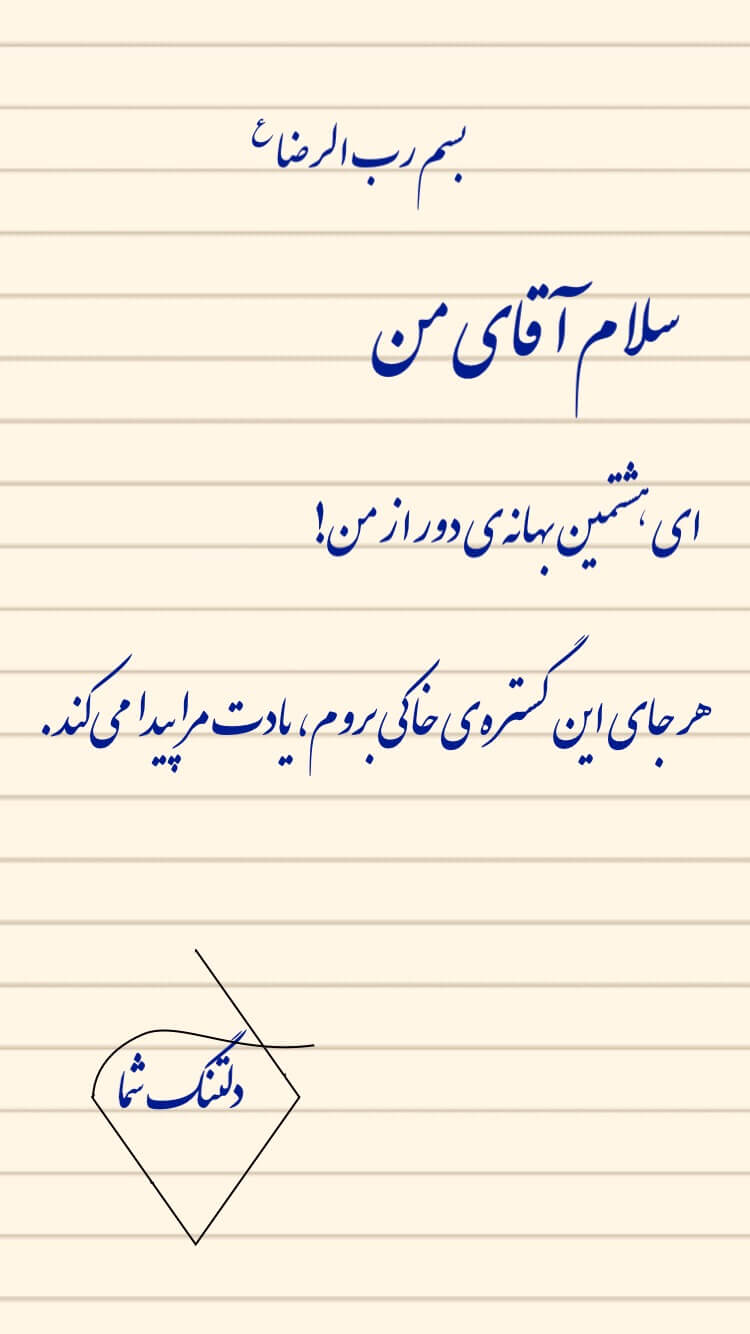 بسم رب الرضا ع
سلام آقای من
ای هشتمین بهانه‌ی دور از من!
هر جای این گستره‌ی خاکی بروم، یادت مرا پیدا می‌کند.
دلتنگ شما